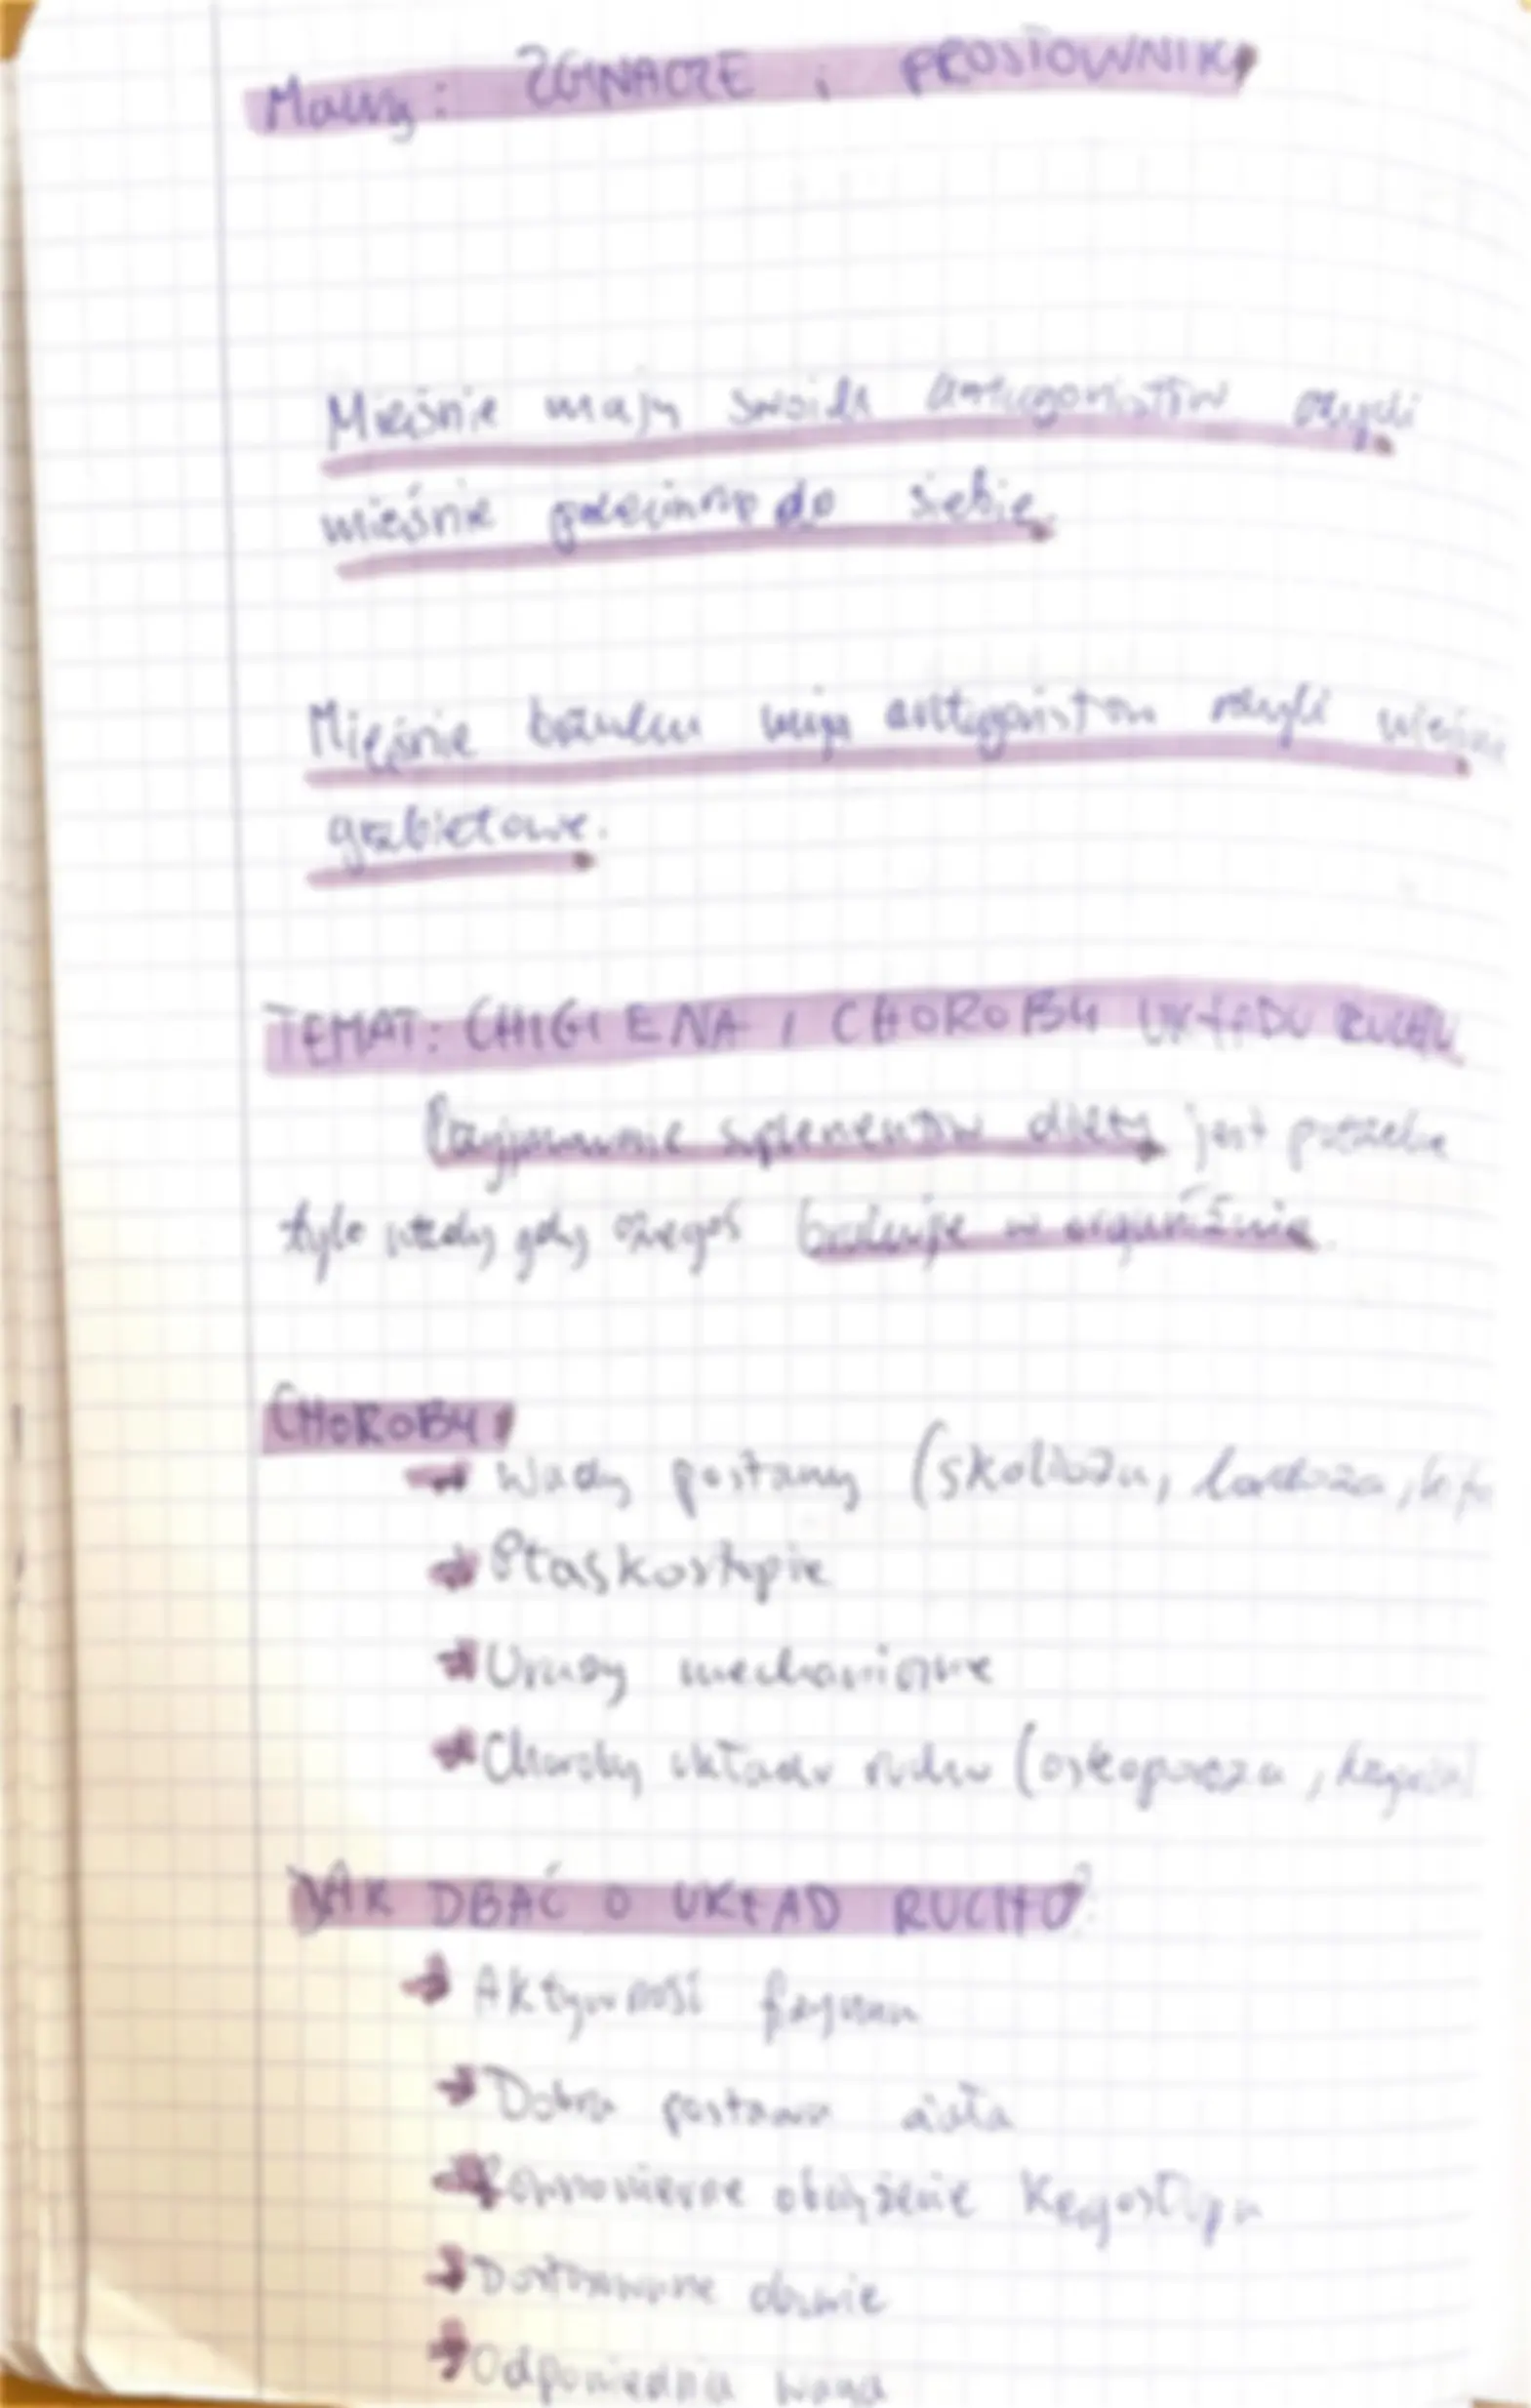 Mamy: ZGINACZE i PROSTOWNIKI
Mięśnie mają swoich antagonistów czyli
mięśnie przeciwne do siebie.
Mięśnie brzucha mają antagonistów czyli mięśnie
grzbietowe.
TEMAT: CHIGIENA I CHOROBY UKŁADU RUCHU
Przyjmowanie suplementów diety jest potrzebne
tylko wtedy gdy czegoś brakuje w organiźmie.
CHOROBY
→ Wady postawy (skolioza, lordoza,
→ Płaskostopie
→ Urazy mechaniczne
→ Choroby układu ruchu (osteoporoza,
JAK DBAĆ O UKŁAD RUCHU?
→ Aktywność fizyczna
→ Dobra postawa ciała
→ Równomierne obciążenie kręgosłupa
→ Dostosowane obuwie
→ Odpowiednia waga